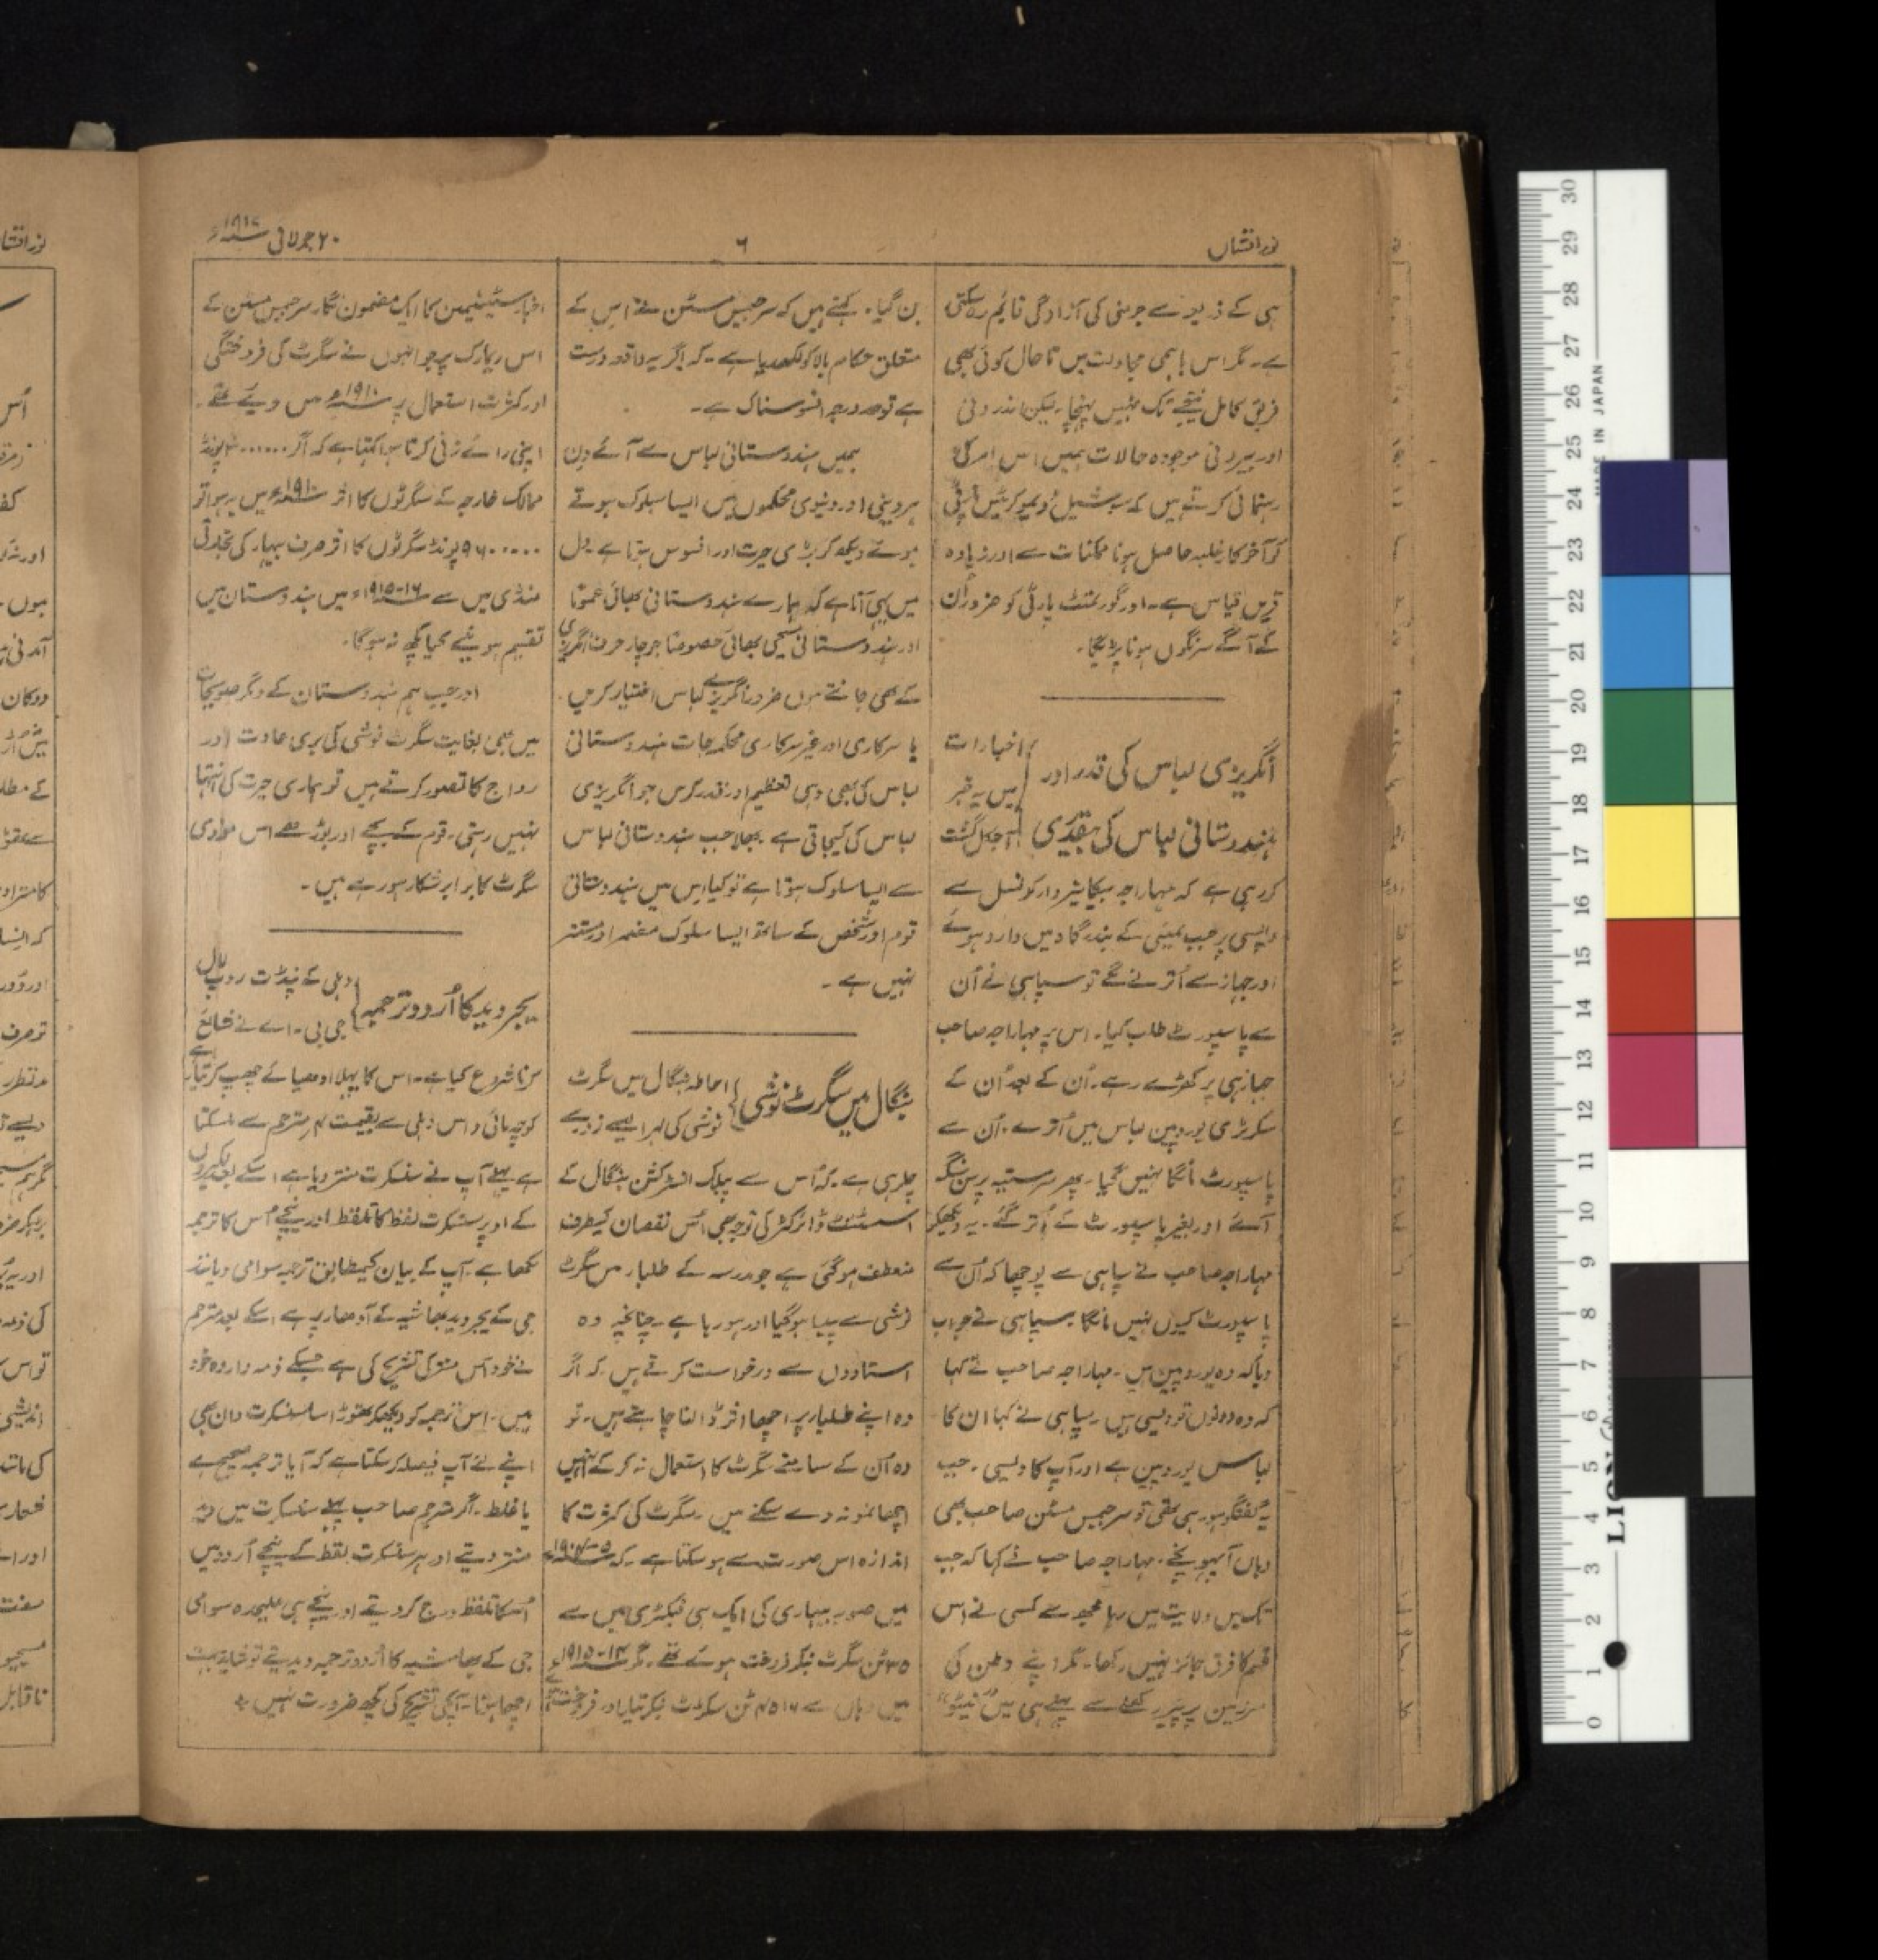 نور افشاں
۶
۲۰ جولائی سنہ ۱۹۱۷ء
ہی کے ذریعہ سے جرمنی کی آزادگی قائم رہ سکتی
ہے۔ مگر اس باہمی مجادلت میں تا حال کوئی بھی
فریق کامل نتیجے تک نہیں پہنچا۔ لیکن اندرونی
اور بیرونی موجودہ حالات ہمیں اس امر کی
رہنمائی کرتے ہیں کہ سوشیل ڈیموکریٹس پارٹی
کو آخر کار غلبہ حاصل ہونا ممکنات سے اور زیادہ
قرین قیاس ہے۔ اور گورنمنٹ پارٹی کو ضرور اُن
کے آگے سرنگوں ہونا پڑیگا۔
انگریزی لباس کی قدر اور
ہندوستانی لباس کی بیقدری
اخبارات
میں یہ خبر
آجکل گشت
کر رہی ہے کہ مہاراجہ بیکانیر وار کونسل سے
واپسی پر جب بمبئی کے بندرگاہ میں وارد ہوئے
اور جہاز سے اُترنے لگے تو سپاہی نے اُن
سے پاسپورٹ طلب کیا۔ اس پر مہاراجہ صاحب
جہاز ہی پر کھڑے رہے۔ اُن کے بعد اُن کے
سکرٹری یوروپین لباس میں اُترے۔ اُن سے
پاسپورٹ مانگا نہیں گیا۔ پھر سر ستیہ پرسن سنگہ
آئے اور بغیر پاسپورٹ کے اُتر گئے۔ یہ دیکھکر
مہاراجہ صاحب نے سپاہی سے پوچھا کہ اُن سے
پاسپورٹ کیوں نہیں مانگا۔ سپاہی نے جواب
دیا کہ وہ یوروپین ہیں۔ مہاراجہ صاحب نے کہا
کہ وہ دونوں تو دیسی ہیں۔ سپاہی نے کہا ان کا
لباس یوروپین ہے اور آپ کا دیسی۔ جب
یہ گفتگو ہو رہی تھی تو سر جیمس مسٹن صاحب بھی
وہاں آپہونچے۔ مہاراجہ صاحب نے کہا کہ جب
تک میں ولایت میں رہا مجھ سے کسی نے اس
قسم کا فرق جائز نہیں رکھا۔ مگر اپنے وطن کی
سرزمین پر پَیر رکھنے سے پہلے ہی میں ”نیٹو“
بن گیا۔ کہتے ہیں کہ سر جیمس مسٹن نے اس کے
متعلق حکام بالا کو لکھدیا ہے۔ کہ اگر یہ واقعہ درست
ہے تو حد درجہ افسوسناک ہے۔
ہمیں ہندوستانی لباس سے آئے دِن
ہر دینی اور دنیوی محکموں میں ایسا سلوک ہوتے
ہوئے دیکھ کر بڑی حیرت اور افسوس ہوتا ہے۔ دل
میں یہی آتا ہے کہ ہمارے ہندوستانی بھائی عموماً
اور ہندوستانی مسیحی بھائی خصوصاً جو چار حرف انگریزی
کے بھی جانتے ہوں ضرور انگریزی لباس اختیار کریں۔
یا سرکاری اور غیر سرکاری محکمہ جات ہندوستانی
لباس کی بھی وہی تعظیم اور قدر کریں جو انگریزی
لباس کی کیجاتی ہے۔ بھلا جب ہندوستانی لباس
سے ایسا سلوک ہوتا ہے تو کیا اس میں ہندوستانی
قوم اور شخص کے ساتھ ایسا سلوک مضمر اور مستتر
نہیں ہے۔
بنگال میں سگرٹ نوشی
احاطہ بنگال میں سگرٹ
نوشی کی لہر ایسے زور سے
چل رہی ہے۔ کہ اُس سے پبلک انسٹرکشن بنگال کے
اسسٹنٹ ڈائرکٹر کی توجہ بھی اُس نقصان کیطرف
منعطف ہو گئی ہے جو مدرسہ کے طلبا میں سگرٹ
نوشی سے پیدا ہو گیا اور ہو رہا ہے۔ چنانچہ وہ
استادوں سے درخواست کرتے ہیں۔ کہ اگر
وہ اپنے طلبا پر اچھا اثر ڈالنا چاہتے ہیں۔ تو
وہ اُن کے سامنے سگرٹ کا استعمال نہ کر کے اُنہیں
اچھا نمونہ دے سکتے ہیں۔ سگرٹ کی کثرت کا
اندازہ اس صورت سے ہو سکتا ہے۔ کہ
میں صوبہ بہار کی ایک ہی فیکٹری میں سے
ٹن سگرٹ بنکر فروخت ہوئے تھے۔ مگر سنہ ۱۴-۱۹۱۵ء
میں وہاں سے ٹن سگرٹ بنکر تیار اور فروخت
اخبار سٹیٹسمین کا ایک مضمون نگار سر جیمس مسٹن کے
اس ریمارک پر جو انہوں نے سگرٹ کی فروختگی
اور کثرت استعمال پر سنہ ۱۹۱۰ء میں دیئے تھے۔
اپنی رائے زنی کرتا ہوا کہتا ہے کہ اگر پونڈ
ممالک خارجہ کے سگرٹوں کا اثر سنہ ۱۹۱۰ء میں یہ ہوا تو
پونڈ سگرٹوں کا اثر صرف بہار کی تجارتی
منڈی میں سے سنہ ۱۶-۱۹۱۵ء میں ہندوستان میں
تقسیم ہونے سے کیا کچھ نہ ہوگا۔
اور جب ہم ہندوستان کے دیگر صوبجات
میں بھی بغایت سگرٹ نوشی کی بری عادت اور
رواج کا تصور کرتے ہیں تو ہماری حیرت کی انتہا
نہیں رہتی۔ قوم کے بچے اور بوڑھے اس موذی
سگرٹ کا برابر شکار ہو رہے ہیں۔
یجر وید کا اُردو ترجمہ
دہلی کے پنڈت روپ لال
جی بی۔ اے نے شائع
کرنا شروع کیا ہے۔ اس کا پہلا ادھیائے چھپ کر تیار ہے
کوچہ پائی واس دہلی سے بقیمت ۴ر مترجم سے مل سکتا
ہے پہلے آپ نے سنسکرت منتر دیا ہے۔ اسکے بعد لکیروں
کے اوپر سنسکرت لفظ کا تلفظ اور نیچے اُس کا ترجمہ
لکھا ہے۔ آپ کے بیان کیمطابق ترجمہ سوامی دیانند
جی کے یجر وید بھاشیہ کے آدھار پر ہے۔ اسکے بعد مترجم
نے خود اُس منتر کی تشریح کی ہے جسکے ذمہ دار وہ خود
ہیں۔ اس ترجمہ کو دیکھکر تھوڑا سا سنسکرت دان بھی
اپنے لئے آپ فیصلہ کر سکتا ہے کہ آیا ترجمہ صحیح ہے
یا غلط۔ اگر مترجم صاحب پہلے سنسکرت میں وید
منتر دیتے اور ہر سنسکرت لفظ کے نیچے اُردو میں
اُسکا تلفظ درج کر دیتے اور نیچے ہی علیحدہ سوامی
جی کے بھاشیہ کا اُردو ترجمہ دیدیتے تو شاید بہت
اچھا ہوتا۔ آپکی تشریح کی کچھ ضرورت نہیں ÷
MADE IN JAPAN
LION